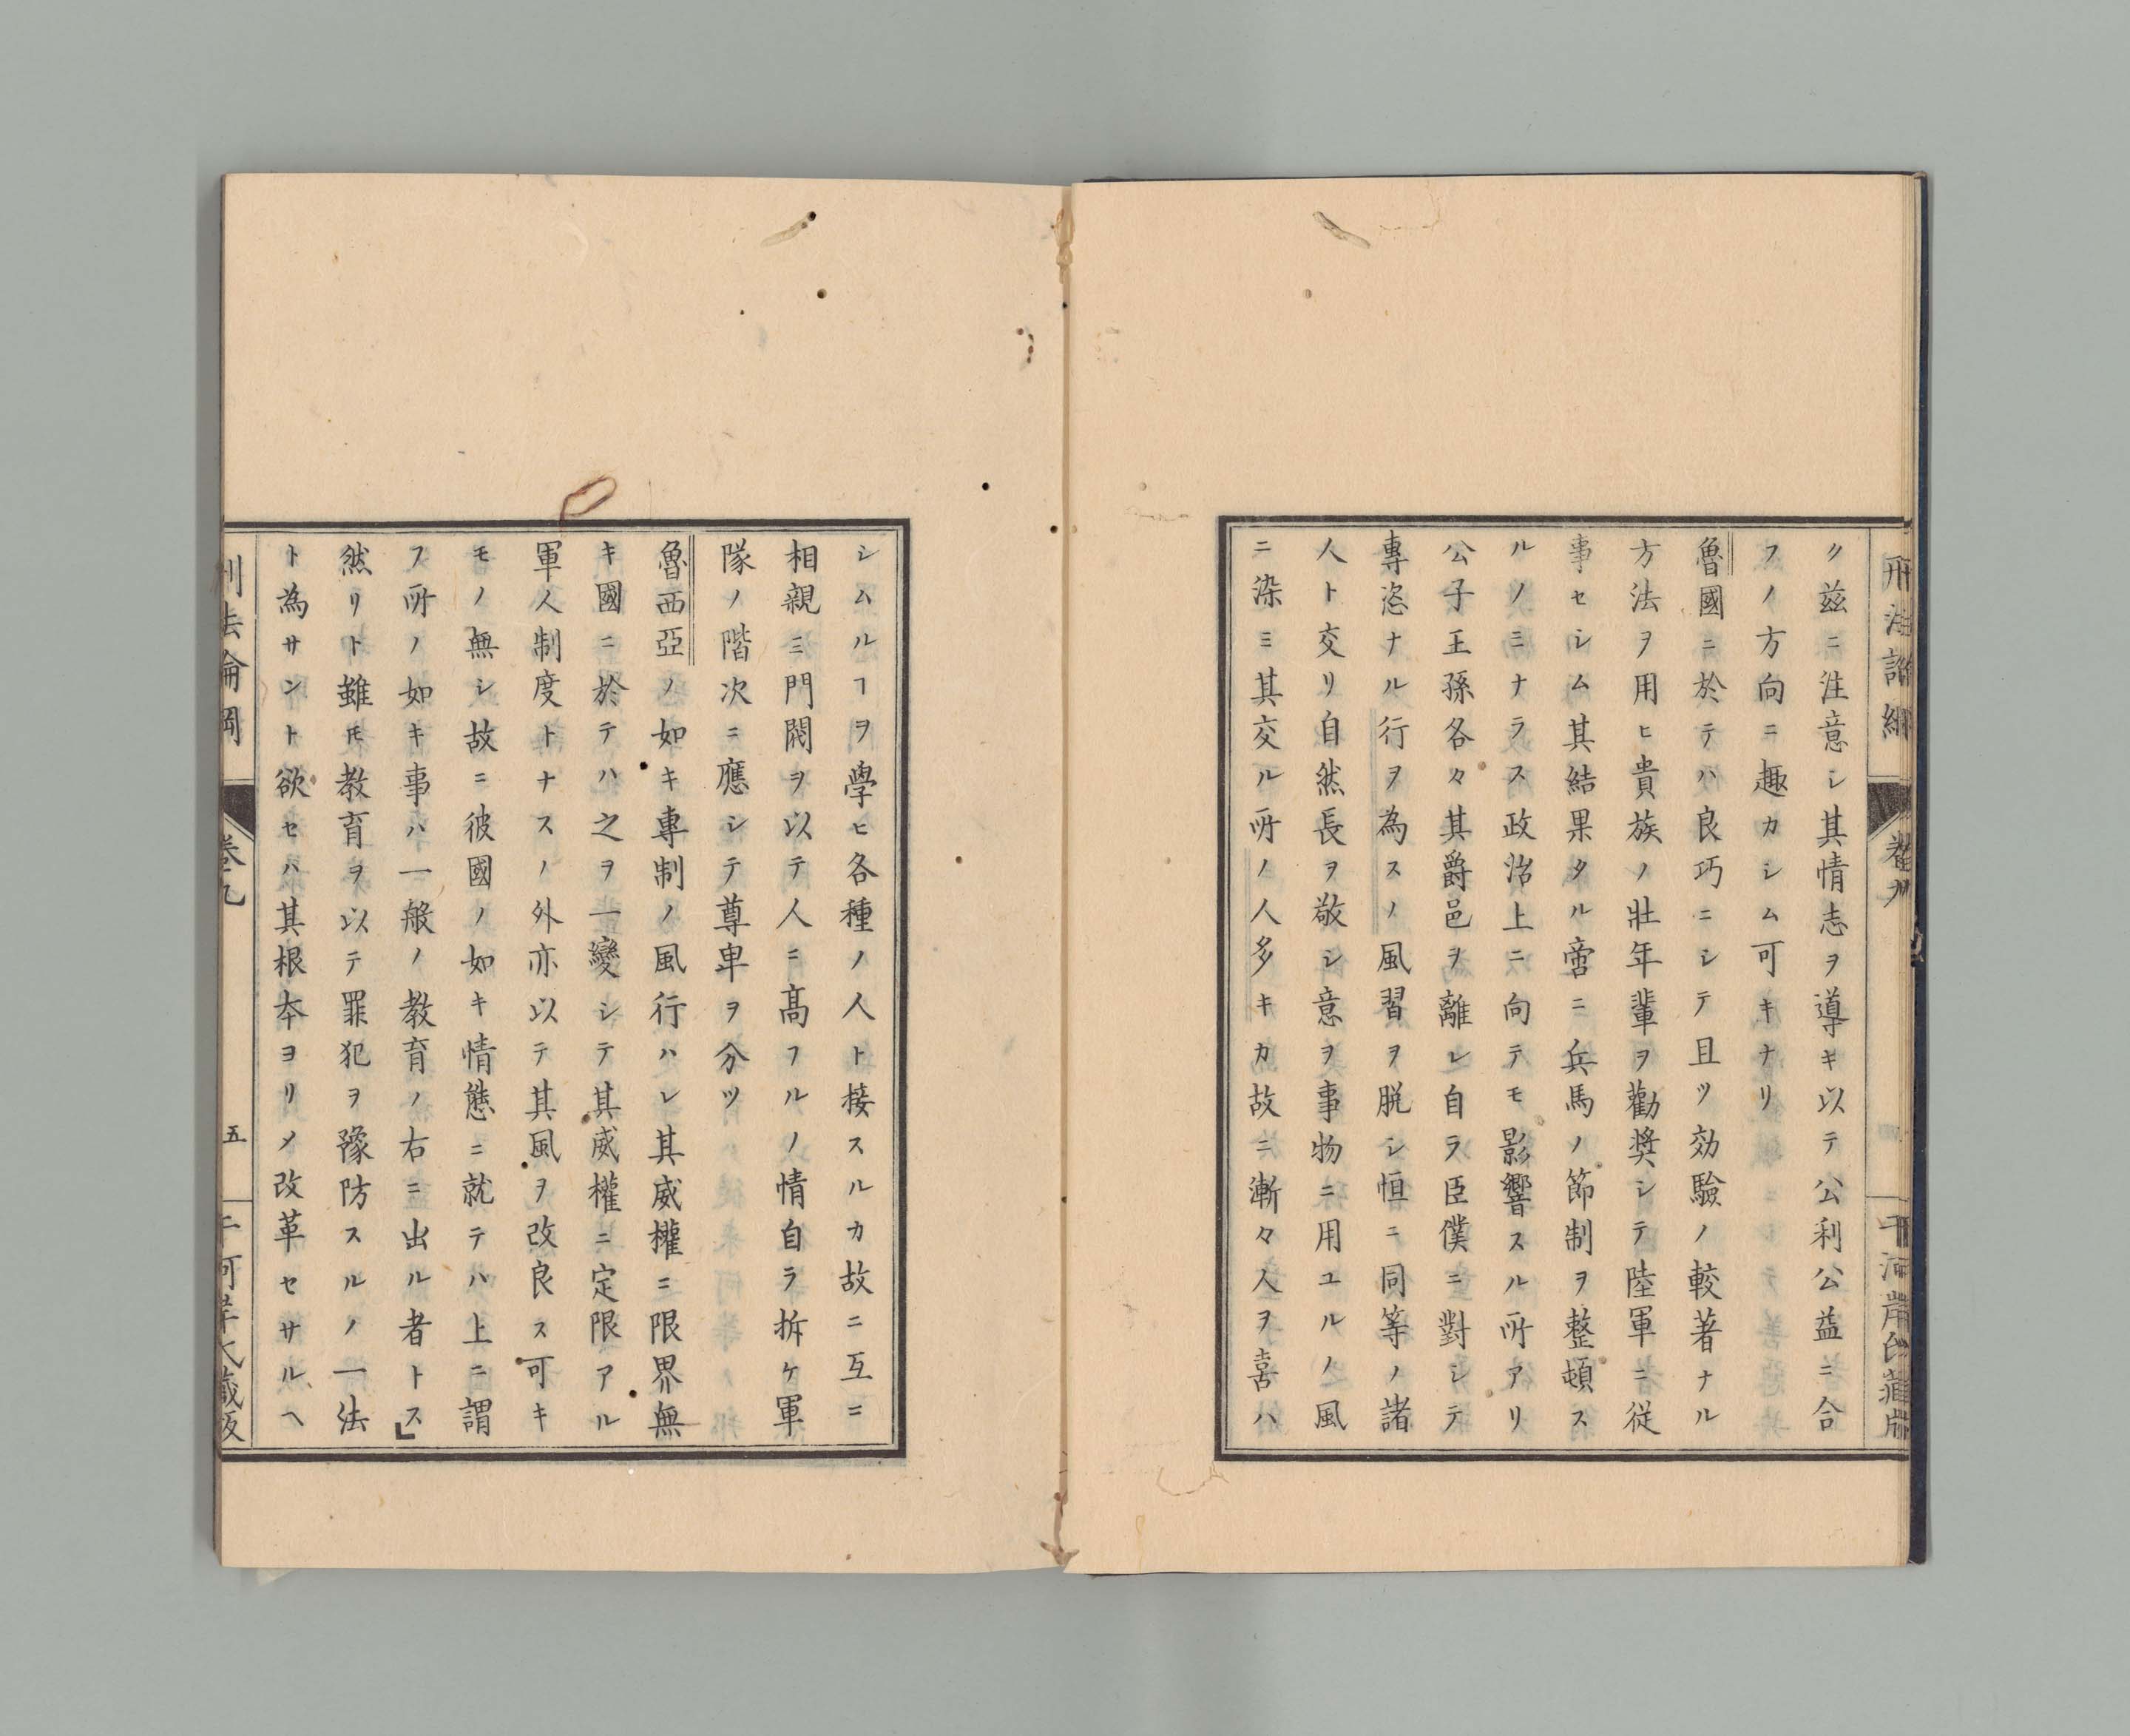 ク茲ニ注意シ其情志ヲ導キ以テ公利公益ニ合
フノ方向ニ趣カシム可キナリ
魯國ニ於テハ良巧ニシテ且ツ効驗ノ較著ナル
方法ヲ用ヒ貴族ノ壯年輩ヲ勸奬シテ陸軍ニ従
事セシム其結果タル啻ニ兵馬ノ節制ヲ整頓ス
ルノミナラス政治上ニ向テモ影響スル所アリ
公子王孫各々其爵邑ヲ離レ自ラ臣僕ニ對シテ
專恣ナル行ヲ為スノ風習ヲ脱シ恒ニ同等ノ諸
人ト交リ自然長ヲ敬シ意ヲ事物ニ用ユルノ風
ニ染ミ其交ル所ノ人多キカ故ニ漸々人ヲ喜ハ
シムルヿヲ學ヒ各種ノ人ト接スルカ故ニ互ニ
相親ミ門閥ヲ以テ人ニ髙フルノ情自ラ拆ケ軍
隊ノ階次ニ應シテ尊卑ヲ分ツ
魯西亞ノ如キ專制ノ風行ハレ其威權ニ限界無
キ國ニ於テハ之ヲ一變シテ其威權ニ定限アル
軍人制度トナスノ外亦以テ其風ヲ改良ス可キ
モノ無シ故ニ彼國ノ如キ情態ニ就テハ上ニ謂
フ所ノ如キ事ハ一般ノ教育ノ右ニ出ル者トス」
然リト雖𪜈教育ヲ以テ罪犯ヲ豫防スルノ一法
ト為サント欲セハ其根本ヨリメ改革セサルヘ
刑法論綱
卷九
五